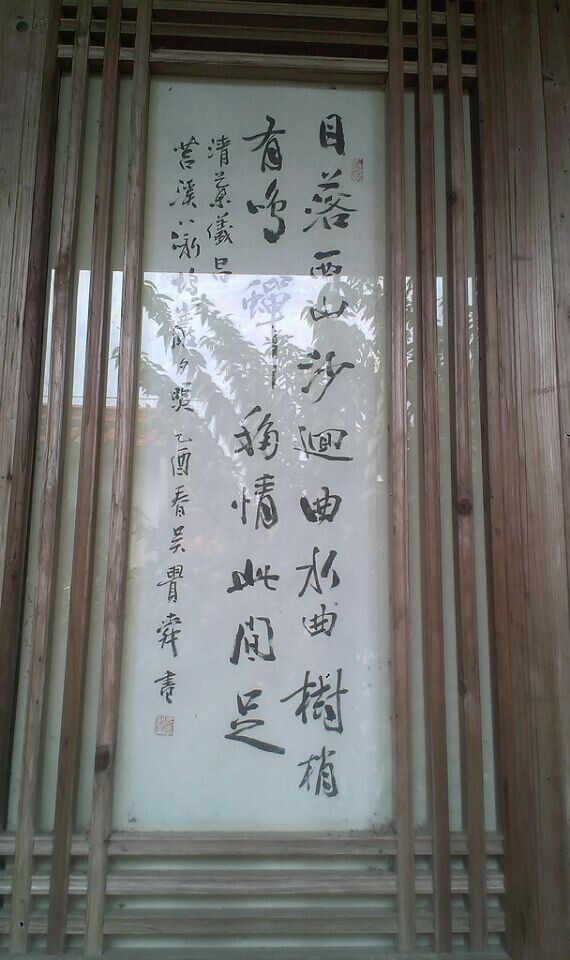 日落西山沙迴曲水曲樹梢
有鳴蟬移情此間足
清葉儀昌
苕溪八詠 夕 乙酉春吳胃舜書